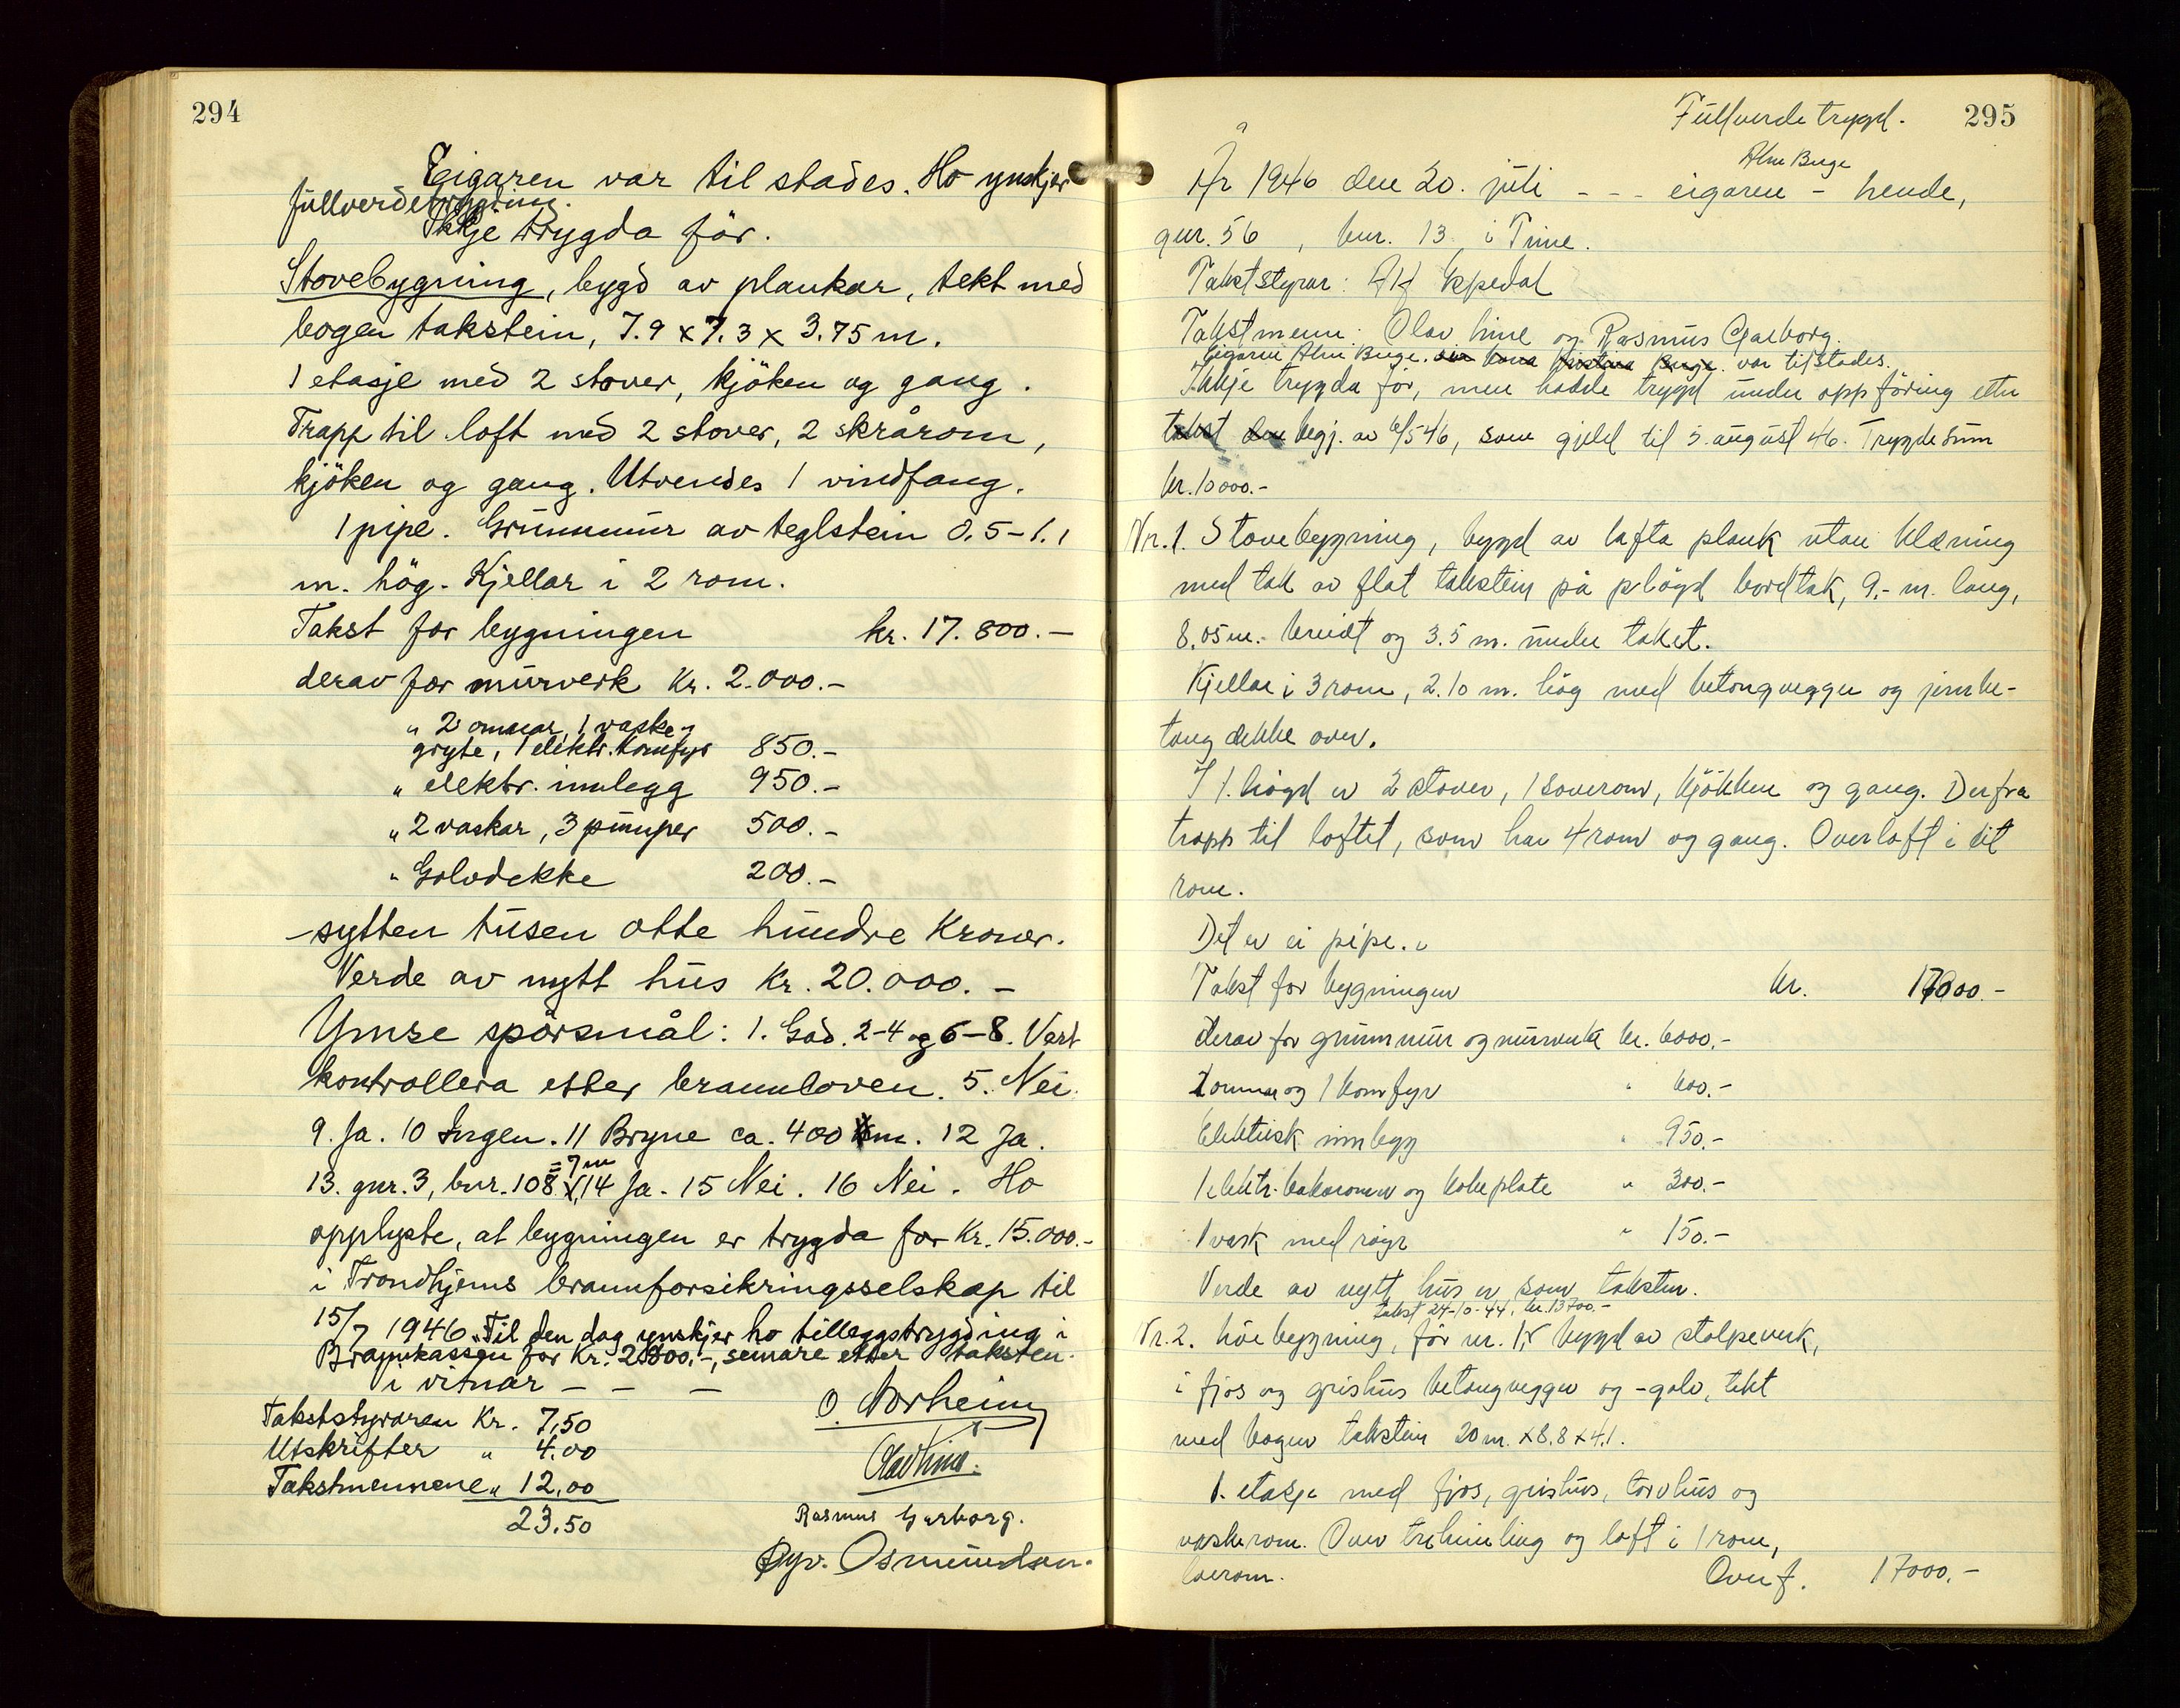 294
Eigaren var til stades. Ho ynskjer
fullverdetrygding.
Ikkje trygda før.
Stovebygning, bygd av plankar, tekt med
bogen takstein, 7.9 x 7.3 x 3.75 m.
1 etasje med 2 stover, kjöken og gang.
Trapp til loft med 2 stover, 2 skrårom,
kjöken og gang. Utvendes 1 vindfang.
1 pipe. Grunnmur av teglstein 0.5-1.1
m. hög. Kjellar i 2 rom.
Takst for bygningen kr. 17.800.-
derav for murverk Kr. 2.000.-
" 2 omnar, 1 vaske-
gryte, 1 elektr. Komfyr 850.-
" elektr. innlegg 950.-
" 2 vaskar, 3 pumper 500.-
" Golvdekke 200.-
-sytten tusen otte hundre Kroner.
Verde av nytt hus Kr. 20.000.-
Ymse spörsmål: 1. God. 2-4 og 6-8. Vert
kontrollera etter brannloven. 5. Nei.
9. Ja. 10 Ingen. 11 Bryne ca. 400 m. 12 Ja.
= 7 m
13. gnr. 3, bnr. 108 14 Ja. 15 Nei. 16 Nei. Ho
opplyste, at bygningen er trygda for Kr. 15.000.-
i Trondhjems brannforsikringsselskap til
15/7 1946. Til den dag ynskjer ho tilleggstrygding i
Brannkassen for Kr. 2800.-, seinare etter taksten.
i vitnar - - -
Takststyraren Kr. 7,50
O. Norheim
Utskrifter " 4.00
Olav Line.
Takstmennene " 12,00
23.50
Rasmus Garborg.
Øyv. Osmundsen.
Fullverde trygd. 295
Alne Berge
År 1946 den 20. juli - - - eigaren - hende,
gnr. 56, bnr. 13 i Time.
Takststyrar: Alf Espedal
Takstmenn: Olav Line og Rasmus Garborg.
Eigaren Alne Berge. var tilstades.
Ikkje trygda før, men hadde trygd under oppföring etter
takst den begj. av 6/5 46, som gjeld til 5. august 46. Trygdesum
kr. 10000.-
Nr. 1. Stovebygning, bygd av lafta plank utan klædning
med tak av flat takstein på plögd bordtak, 9.- m. lang,
8.05 m. breidt og 3.5 m. under taket.
Kjellar i 3 rom, 2.10 m. hög med betongvegger og jernbe-
tong dekke over.
I 1. högd er 2 stover, 1 soverom, kjökken og gang. Derfra
trapp til loftet, som har 4 rom og gang. Overloft i eit
rom.
Det er ei pipe.
Takst for bygningen kr. 17000.-
derav for grunnmur og murverk kr. 6000.-
2 omnar og 1 komfyr " 600.-
Elektrisk innlegg " 950.-
1 elektr. bakaromn og kokeplate " 300.-
1 vask med röyr " 150.-
Verde av nytt hus er som taksten.
takst 24-10-44, kr. 13700.-
Nr. 2. Löebygning, før nr. 1, bygd av stolpeverk,
i fjos og grishus betongvegger og -golv, tekt
med bogen takstein 20 m. x 8.8 x 4.1.
1. etasje med fjos, grishus, torvhus og
vaskerom. Over trehimling og loft i 1 rom,
löerom. Overf. 17000.-